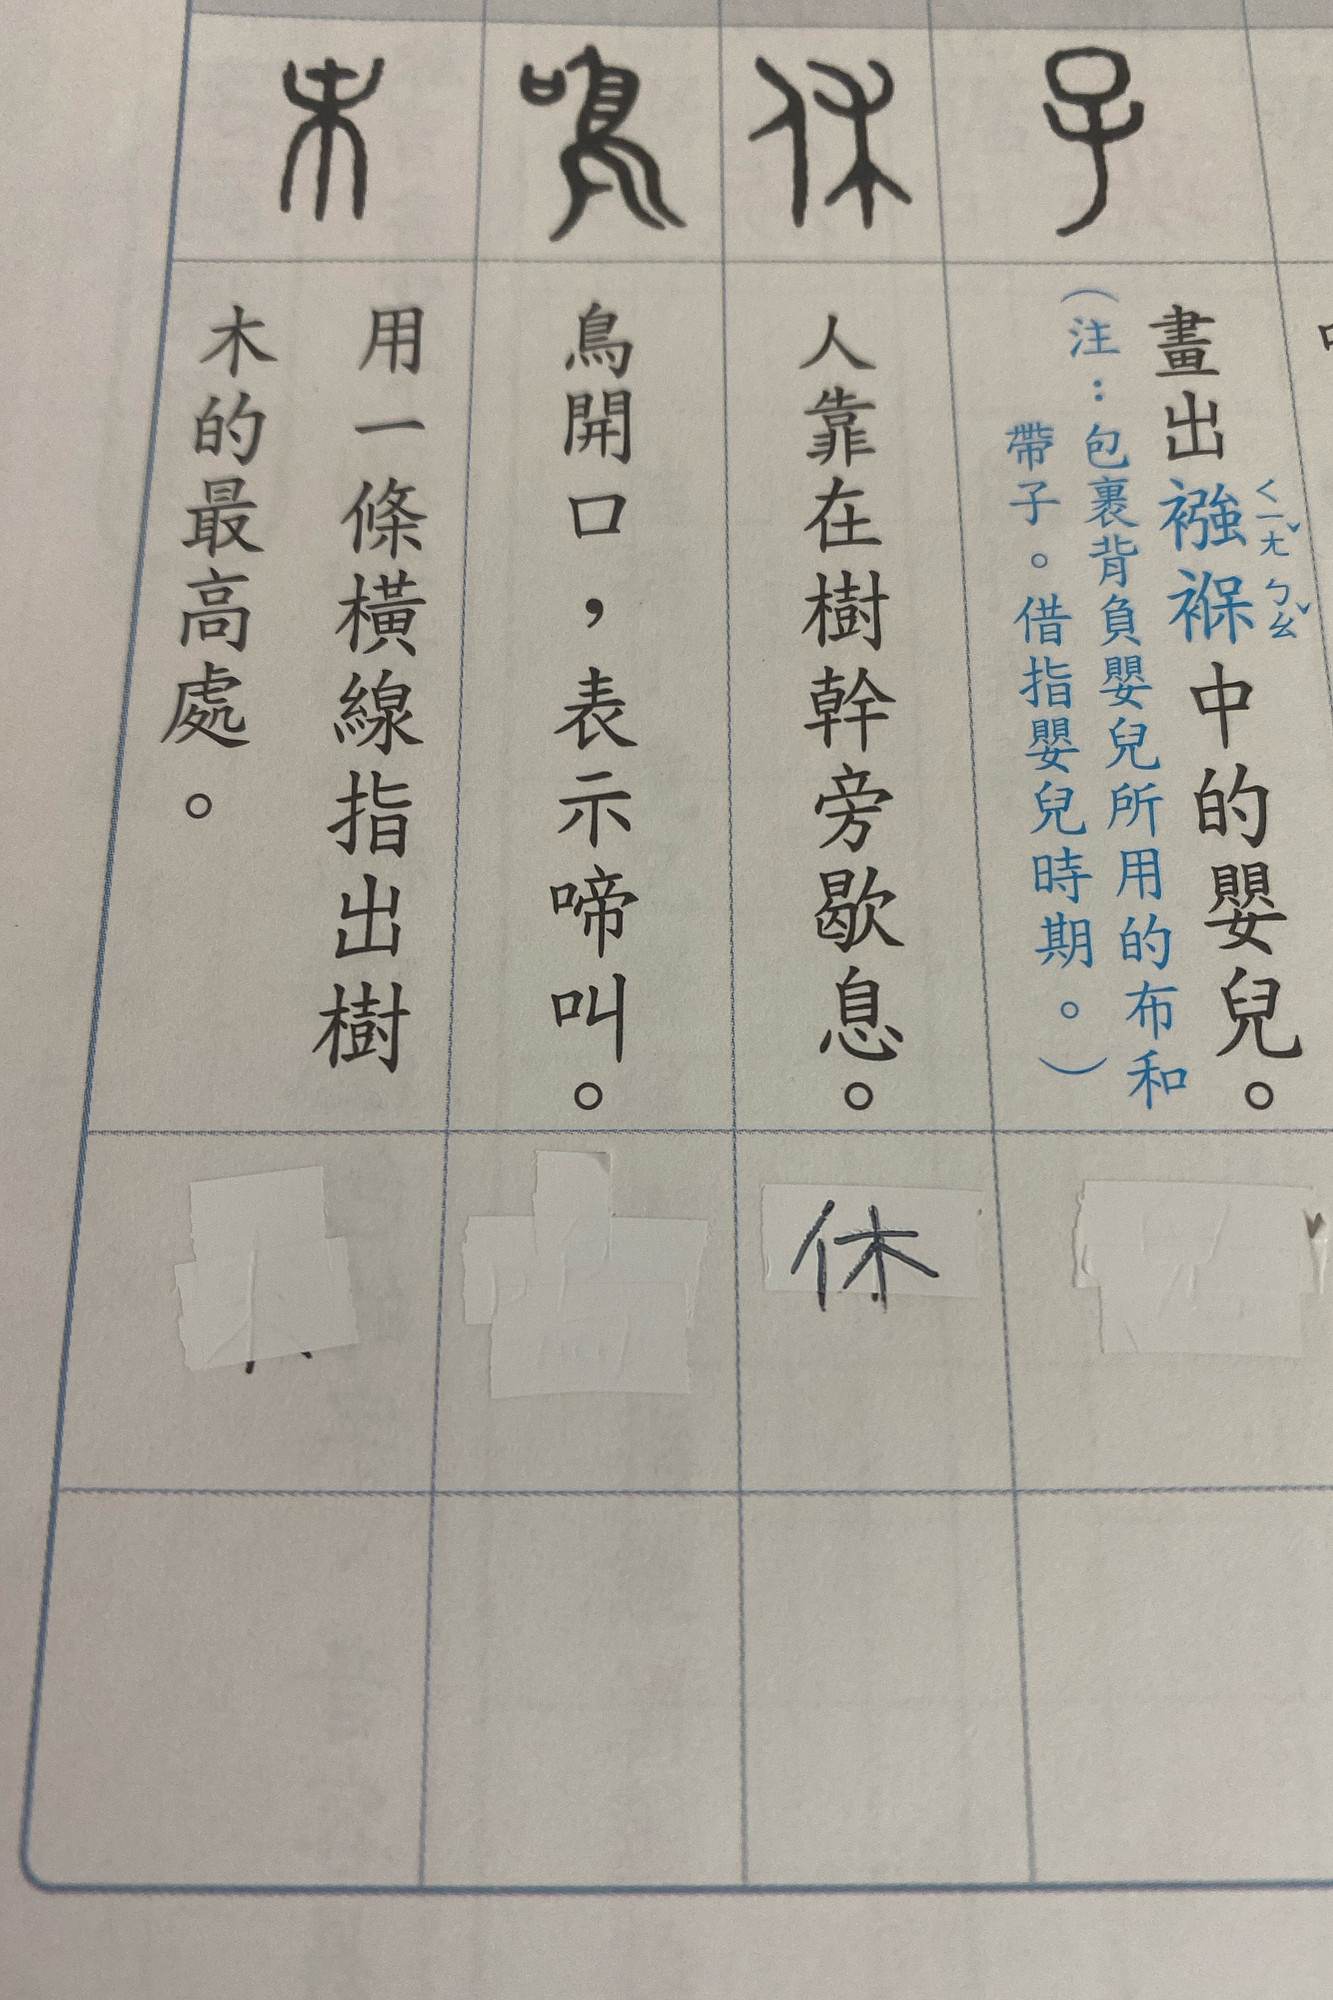 子
畫出襁褓中的嬰兒。
ㄑㄧㄤˇ ㄅㄠˇ
（注：包裹背負嬰兒所用的布和
帶子。借指嬰兒時期。）
休
人靠在樹幹旁歇息。
休
鳴
鳥開口，表示啼叫。
末
用一條橫線指出樹
木的最高處。